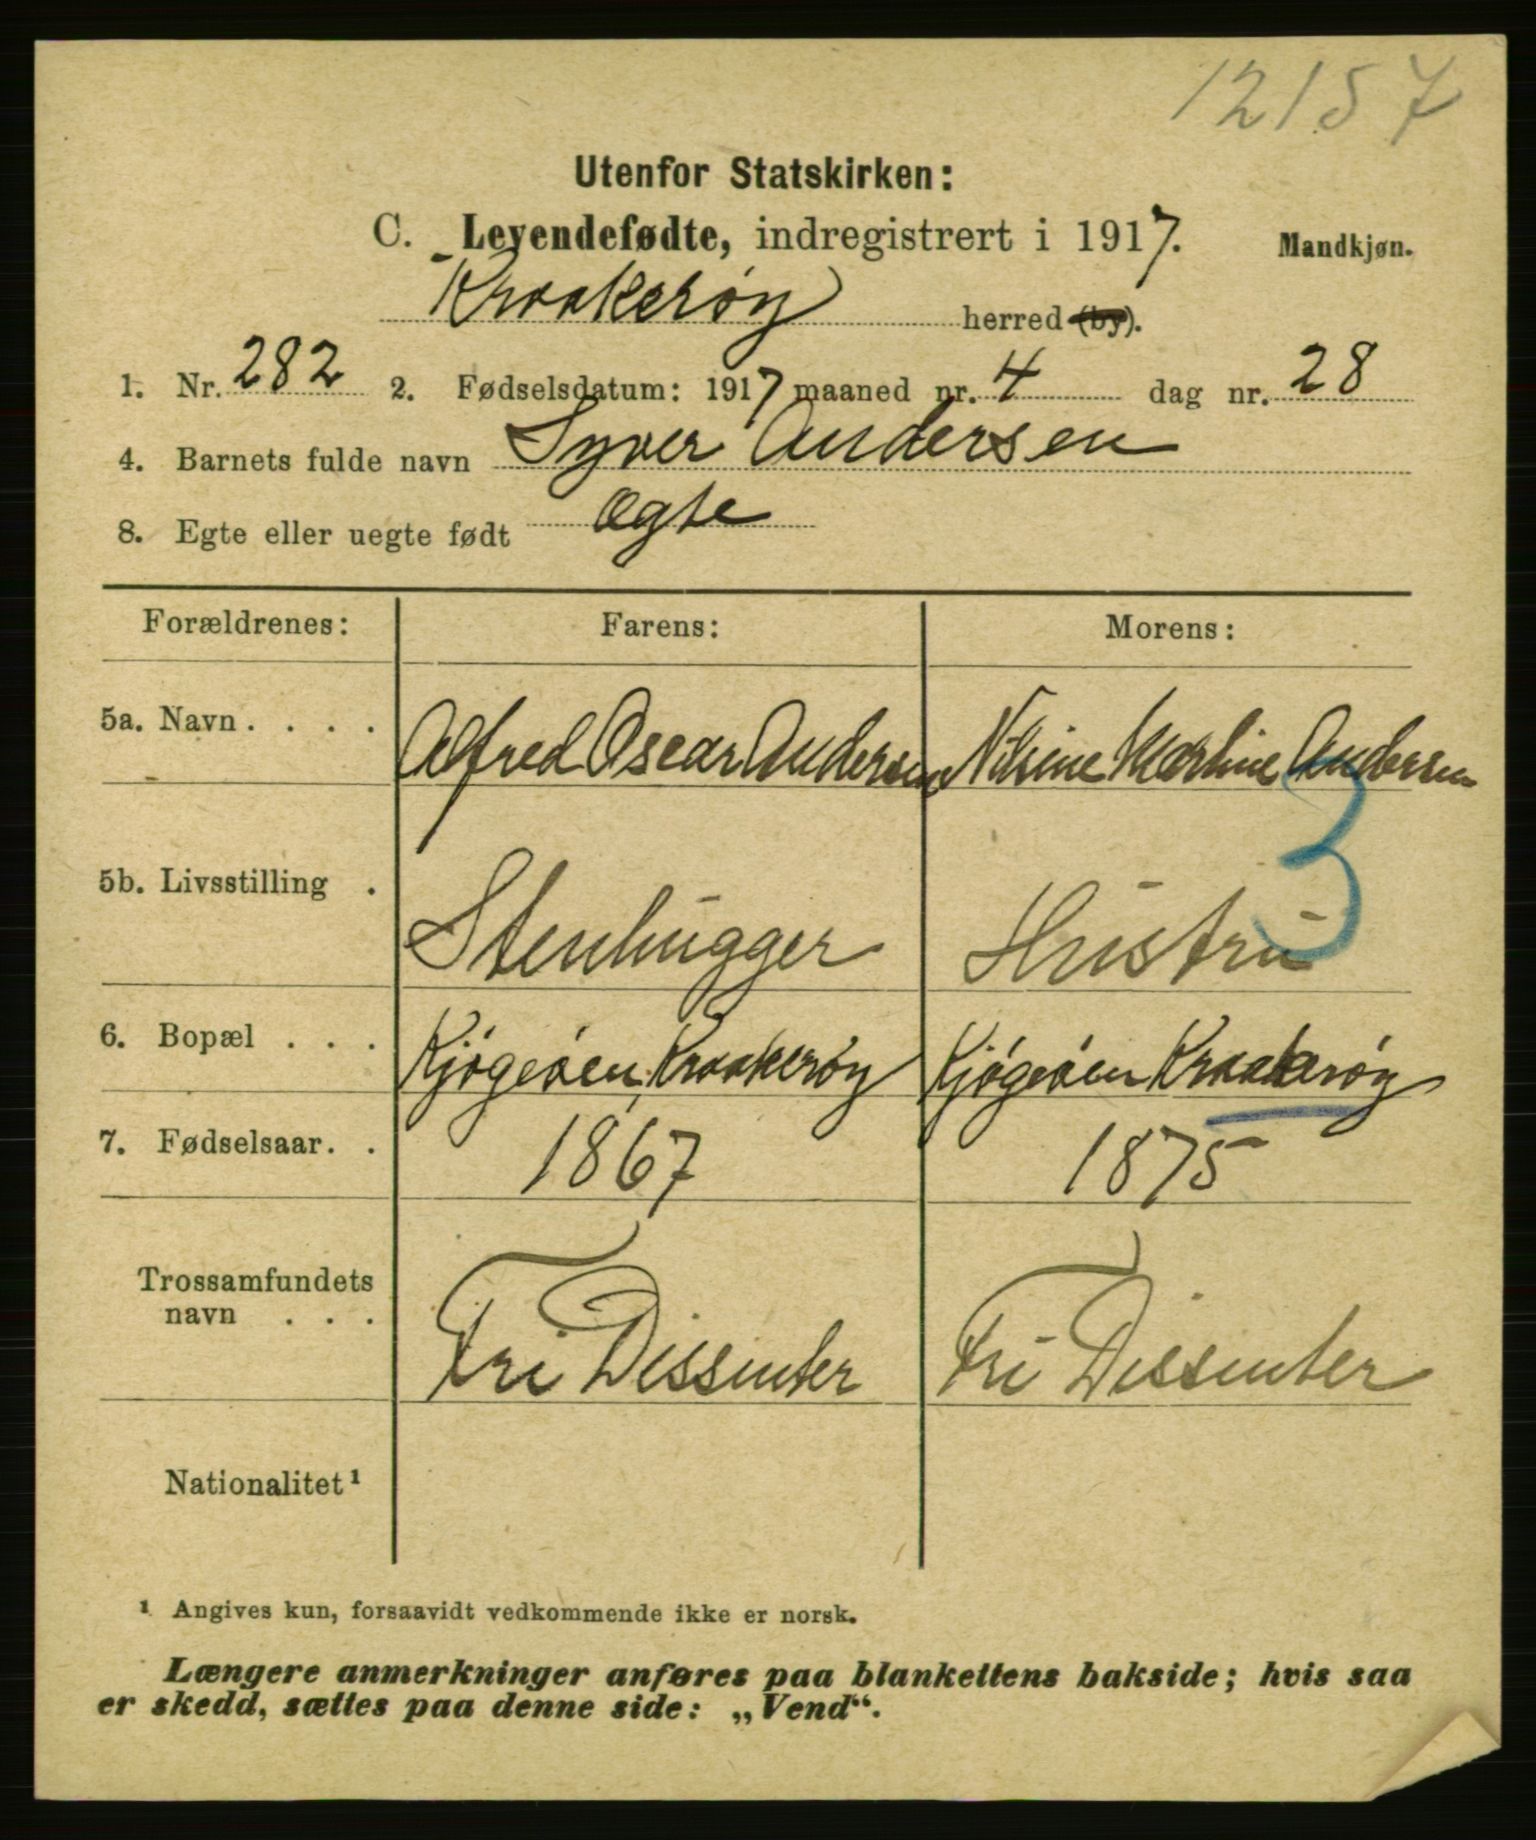 12157
Utenfor Statskirken:
C. Levendefødte, indregistrert i 1917. Mandkjøn.
Kraakerøy herred (by).
1. Nr. 282 2. Fødselsdatum: 1917 maaned nr. 4 dag nr. 28
4. Barnets fulde navn Syver Andersen
8. Egte eller uegte født Ægte
Forældrenes: Farens: Morens:
5a. Navn. . . . Alfred Oscar Andersen Nilsine Martine Andersen
3
5b. Livsstilling . Stenhugger Hustru
6. Bopæl . . . Kjøgeøen, Kraakerøy Kjøgeøen Kraakerøy
7. Fødselsaar. . 1867 1875
Trossamfundets
navn . . . Fri Dissenter Fri Dissenter
Nationalitet¹
¹ Angives kun, forsaavidt vedkommende ikke er norsk.
Længere anmerkninger anføres paa blankettens bakside; hvis saa
er skedd, sættes paa denne side: „Vend“.